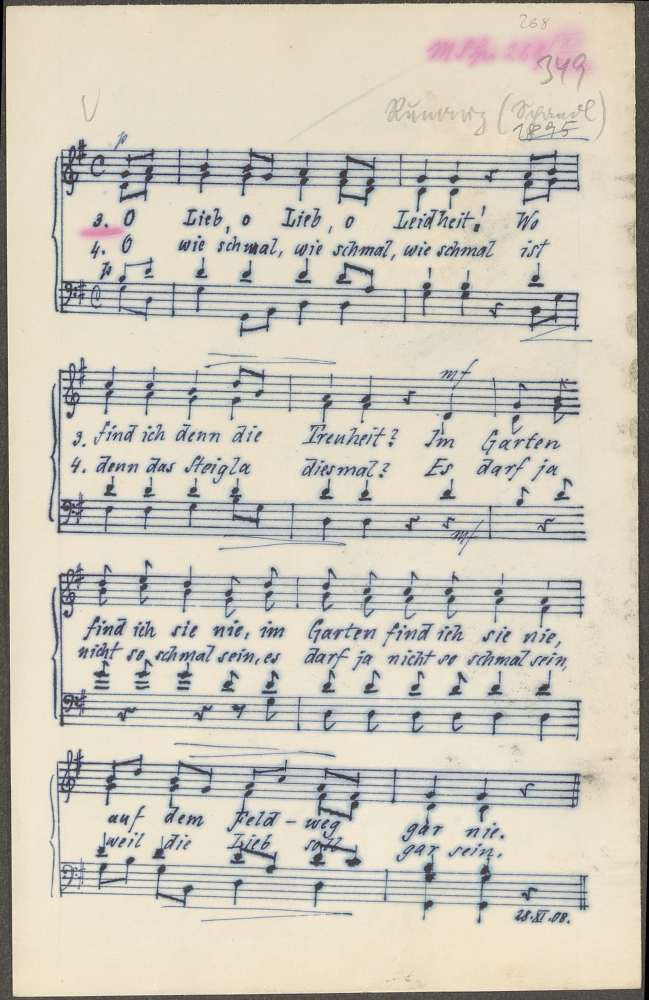 268
349
1895
p
3. O Lieb, o Lieb, o Leidheit! Wo
4. O wie schmal, wie schmal, wie schmal ist
p
mf
3. find ich denn die Treuheit? Im Garten
4. denn das Steigla diesmal? Es darf ja
mf
find ich sie nie, im Garten find ich sie nie,
nicht so schmal sein, es darf ja nicht so schmal sein,
auf dem Feld-weg gar nie.
weil die Lieb soll gar sein.
28.XI.08.